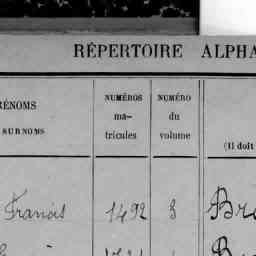 RÉPERTOIRE ALPHA
RÉNOMS
SURNOMS
NUMÉROS
ma-
tricules
NUMÉRO
du
volume
(Il doit
Francis 1492 3 Bre